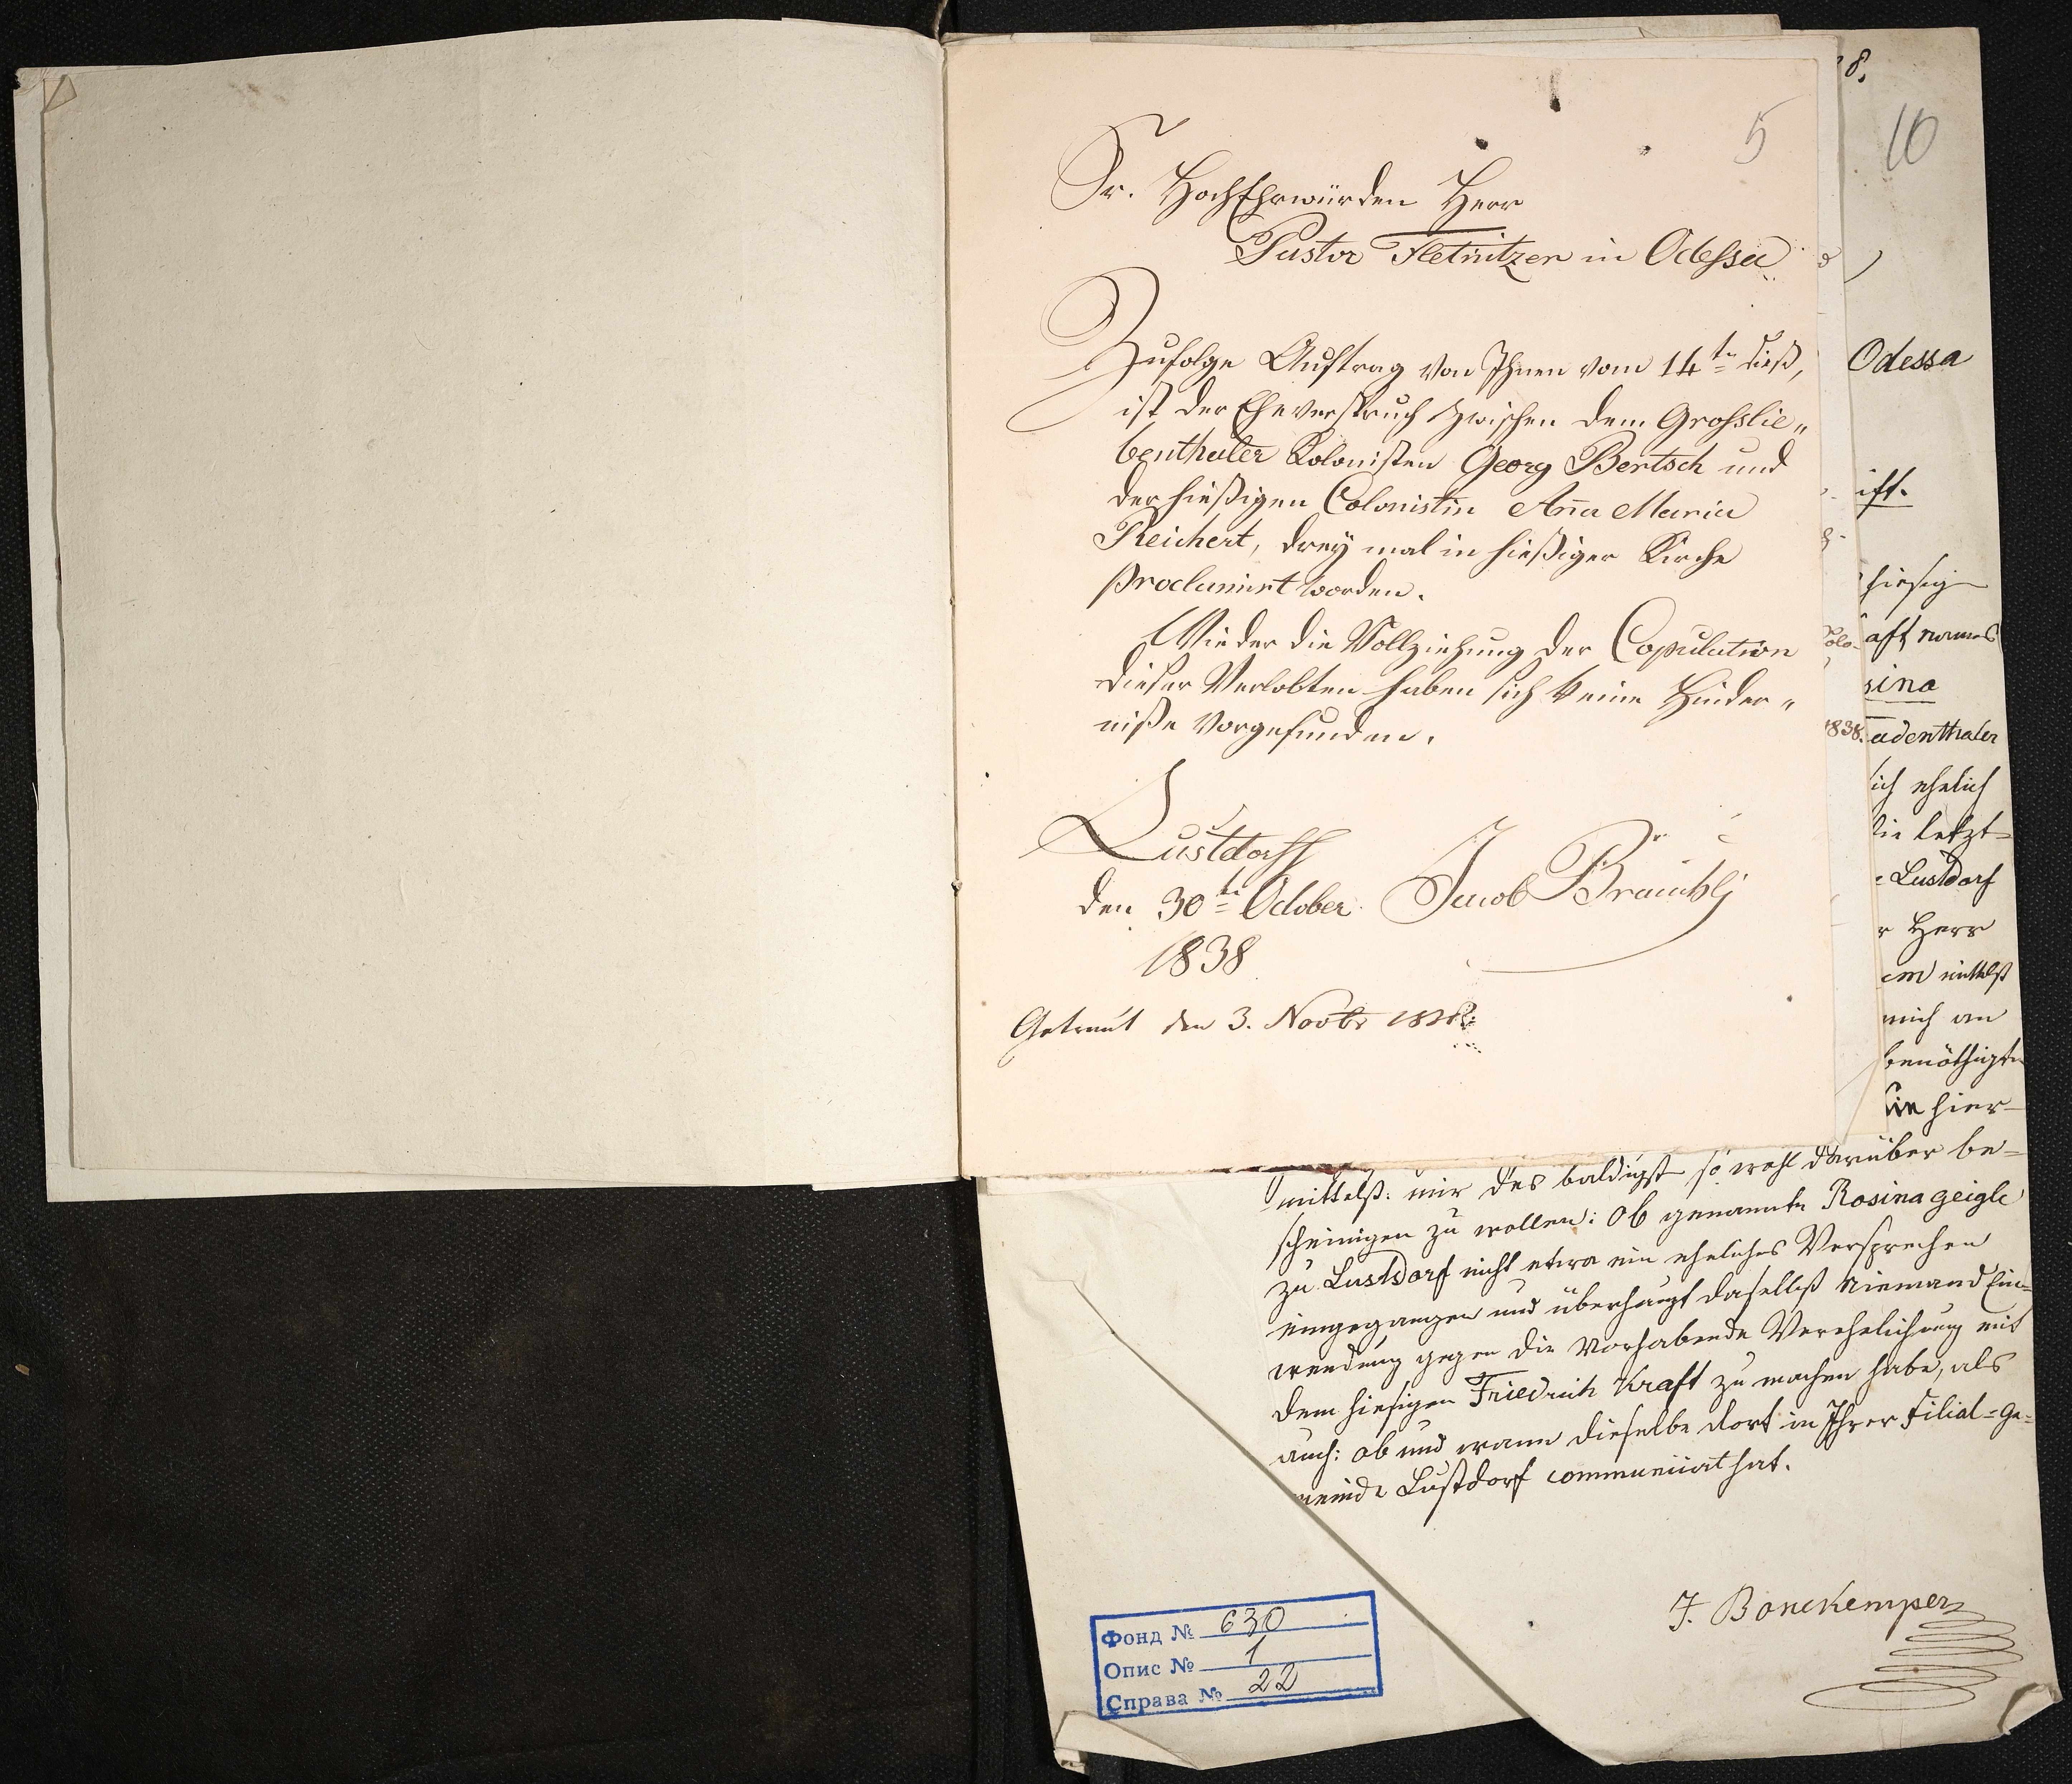 5
Sr. HochEhrwürden Herr
Pastor Fletnitzer in Odessa
Zufolge Auftrag von Ihnen vom 14tn dieß,
ist der Eheverspruch zwischen dem Grosslie„
benthaler Kolonisten Georg Bertsch und
der hießigen Colonistin Ana Maria
Reichert, dreÿ mal in hießiger Kirche
Proclamirt worden.
Wieder die Vollziehung der Copulation
dieser Verlobten haben sich keine Hinder„
niße Vorgefunden.
Lustdorff
den 30tn October Jacob Bräuchlj
1838
Getraut den 3. Novbr 1838.
8.
10
Odessa
ift.
hiesig
aft
sina
Kolo-
1838.
adenthaler
ich ehelich
die letzt-
Lustdorf
r Herr
em mittelst
mich an
benöthigte
Sie hier-
mittelst: mir des baldigst so wohl darüber be-
scheinigen zu wollen: Ob genannte Rosina geigle
zu Lustdorf nicht etwa ein eheliches Versprechen
eingegangen und überhaupt daselbst Niemand Ein-
wendung gegen die Vorhabende Verehelichung mit
dem hiesigen Friedrich Kraft zu machen habe, als
auch: ob und wann dieselbe dort in Ihrer Filial-Ge-
meinde Lustdorf communicirt hat.
J. Bonekemper
Фонд № 630
Опис № 1
Справа № 22